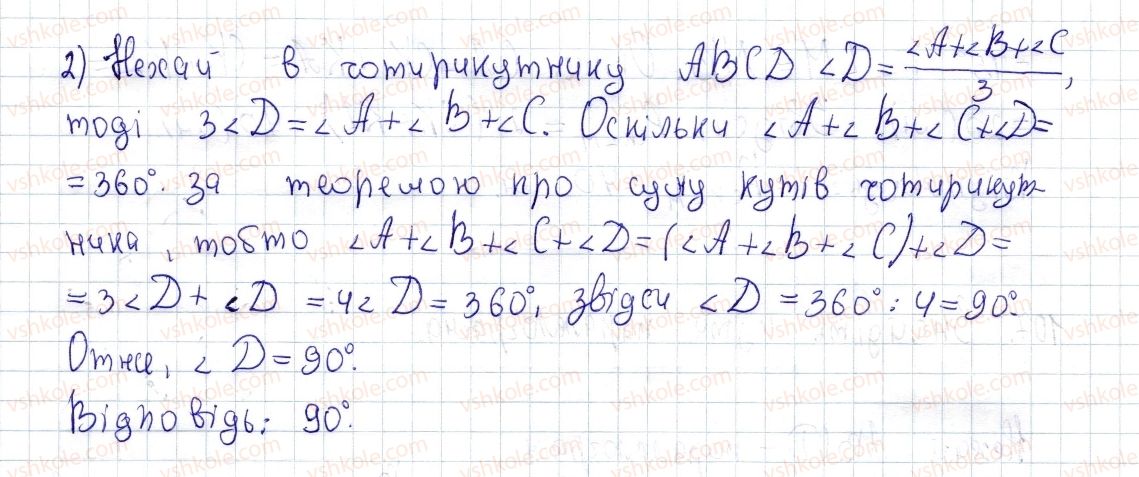 2) Нехай в чотирикутнику ABCD ∠D = (∠A+∠B+∠C)/3,
тоді 3∠D=∠A+∠B+∠C. Оскільки ∠A+∠B+∠C+∠D=
=360°. за теоремою про суму кутів чотирикут-
ника, тобто ∠A+∠B+∠C+∠D=(∠A+∠B+∠C)+∠D=
=3∠D+∠D =4∠D=360°, звідси ∠D =360°:4=90°.
Отже, ∠D=90°.
Відповідь: 90°.
vshkole.com